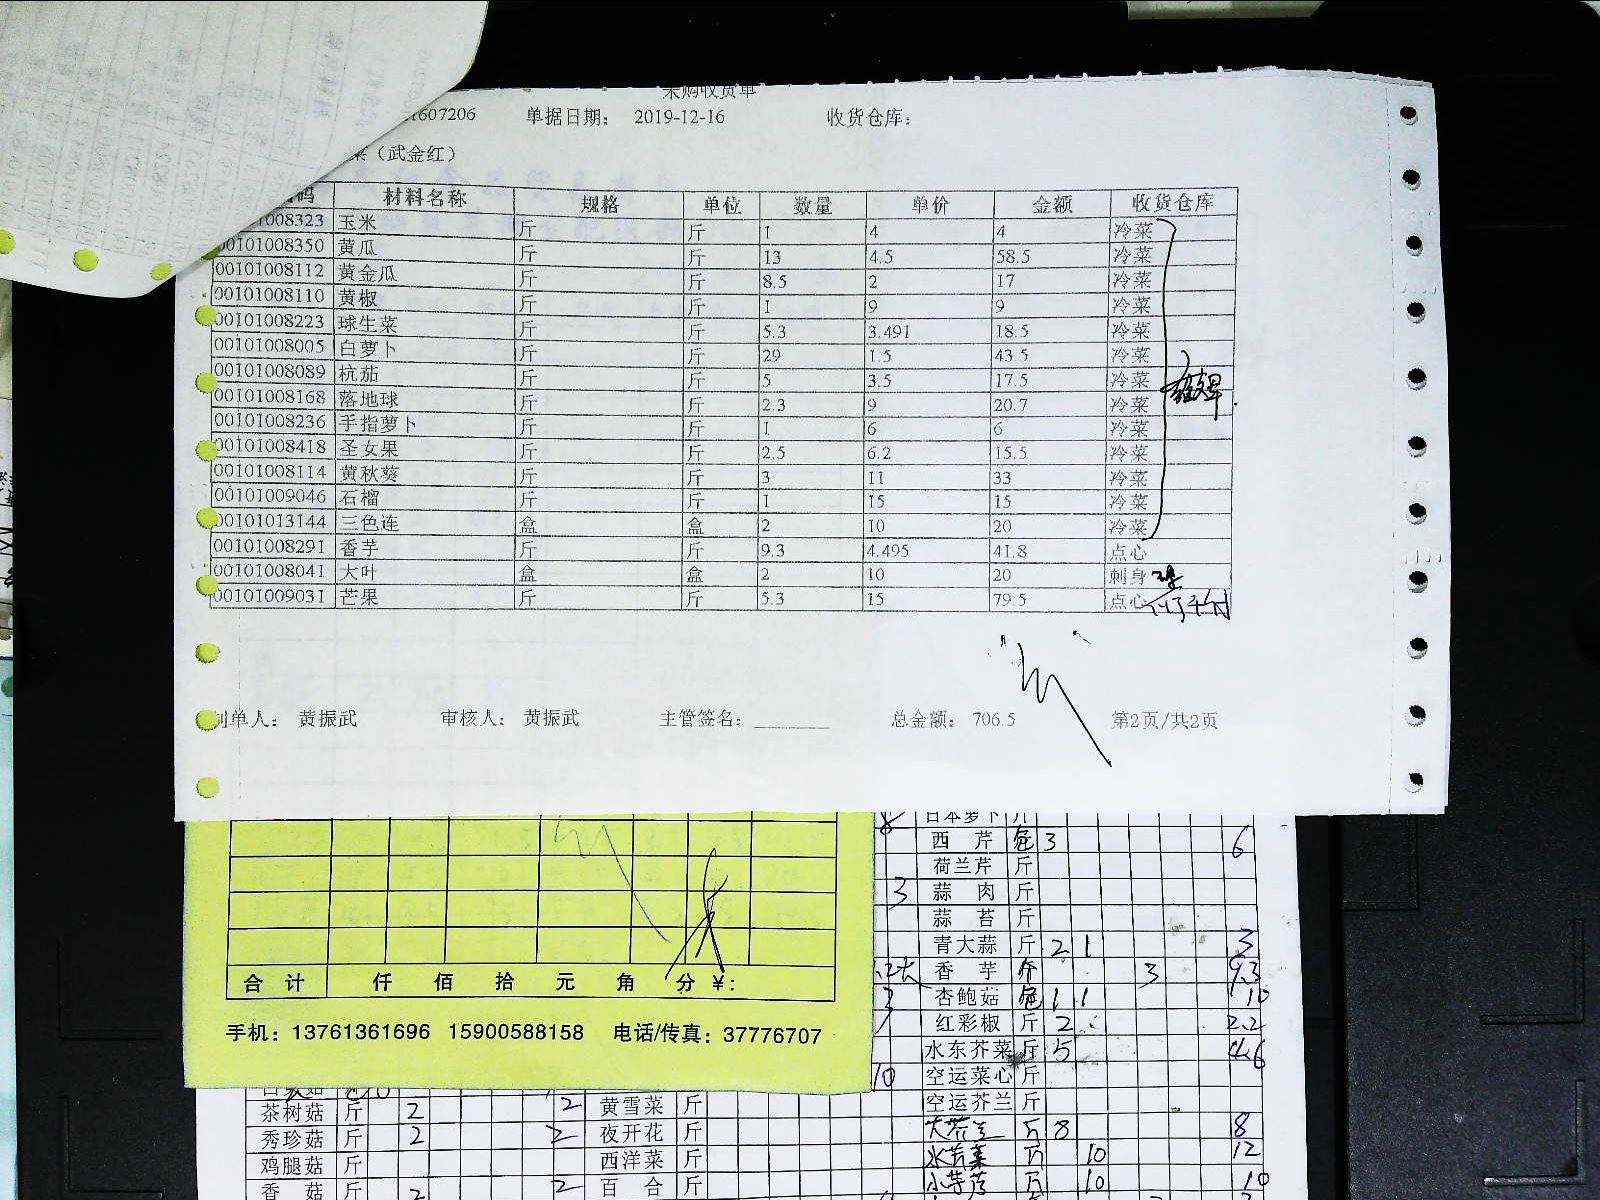 采购收货单
1607206 单据日期： 2019-12-16 收货仓库：
菜（武金红）
码 材料名称 规格 单位 数量 单价 金额 收货仓库
1008323 玉米 斤 斤 1 4 4 冷菜
00101008350 黄瓜 斤 斤 13 4.5 58.5 冷菜
00101008112 黄金瓜 斤 斤 8.5 2 17 冷菜
00101008110 黄椒 斤 斤 1 9 9 冷菜
00101008223 球生菜 斤 斤 5.3 3.491 18.5 冷菜
00101008005 白萝卜 斤 斤 29 1.5 43.5 冷菜
00101008089 杭茄 斤 斤 5 3.5 17.5 冷菜
00101008168 落地球 斤 斤 2.3 9 20.7 冷菜
00101008236 手指萝卜 斤 斤 1 6 6 冷菜
00101008418 圣女果 斤 斤 2.5 6.2 15.5 冷菜
00101008114 黄秋葵 斤 斤 3 11 33 冷菜
00101009046 石榴 斤 斤 1 15 15 冷菜
00101013144 三色连 盒 盒 2 10 20 冷菜
00101008291 香芋 斤 斤 9.3 4.495 41.8 点心
00101008041 大叶 盒 盒 2 10 20 刺身
00101009031 芒果 斤 斤 5.3 15 79.5 点心
制单人： 黄振武 审核人： 黄振武 主管签名： 总金额： 706.5 第2页/共2页
合 计 仟 佰 拾 元 角 分 ¥：
手机：13761361696 15900588158 电话/传真：37776707
日本萝卜 斤
西 芹 3 6
荷兰芹 斤
3 蒜 肉 斤
蒜 苔 斤
青大蒜 斤 2 1 3
香 芋 斤 3 9.3
3 杏鲍菇 1 1 10
红彩椒 斤 2 2.2
水东芥菜 斤 5 4.6
10 空运菜心 斤
空运芥兰 斤
斤 8 8
10 12
10 10
茶树菇 斤 2 2 黄雪菜 斤
秀珍菇 斤 2 2 夜开花 斤
鸡腿菇 斤 西洋菜 斤
香 菇 斤 2 2 百 合 斤